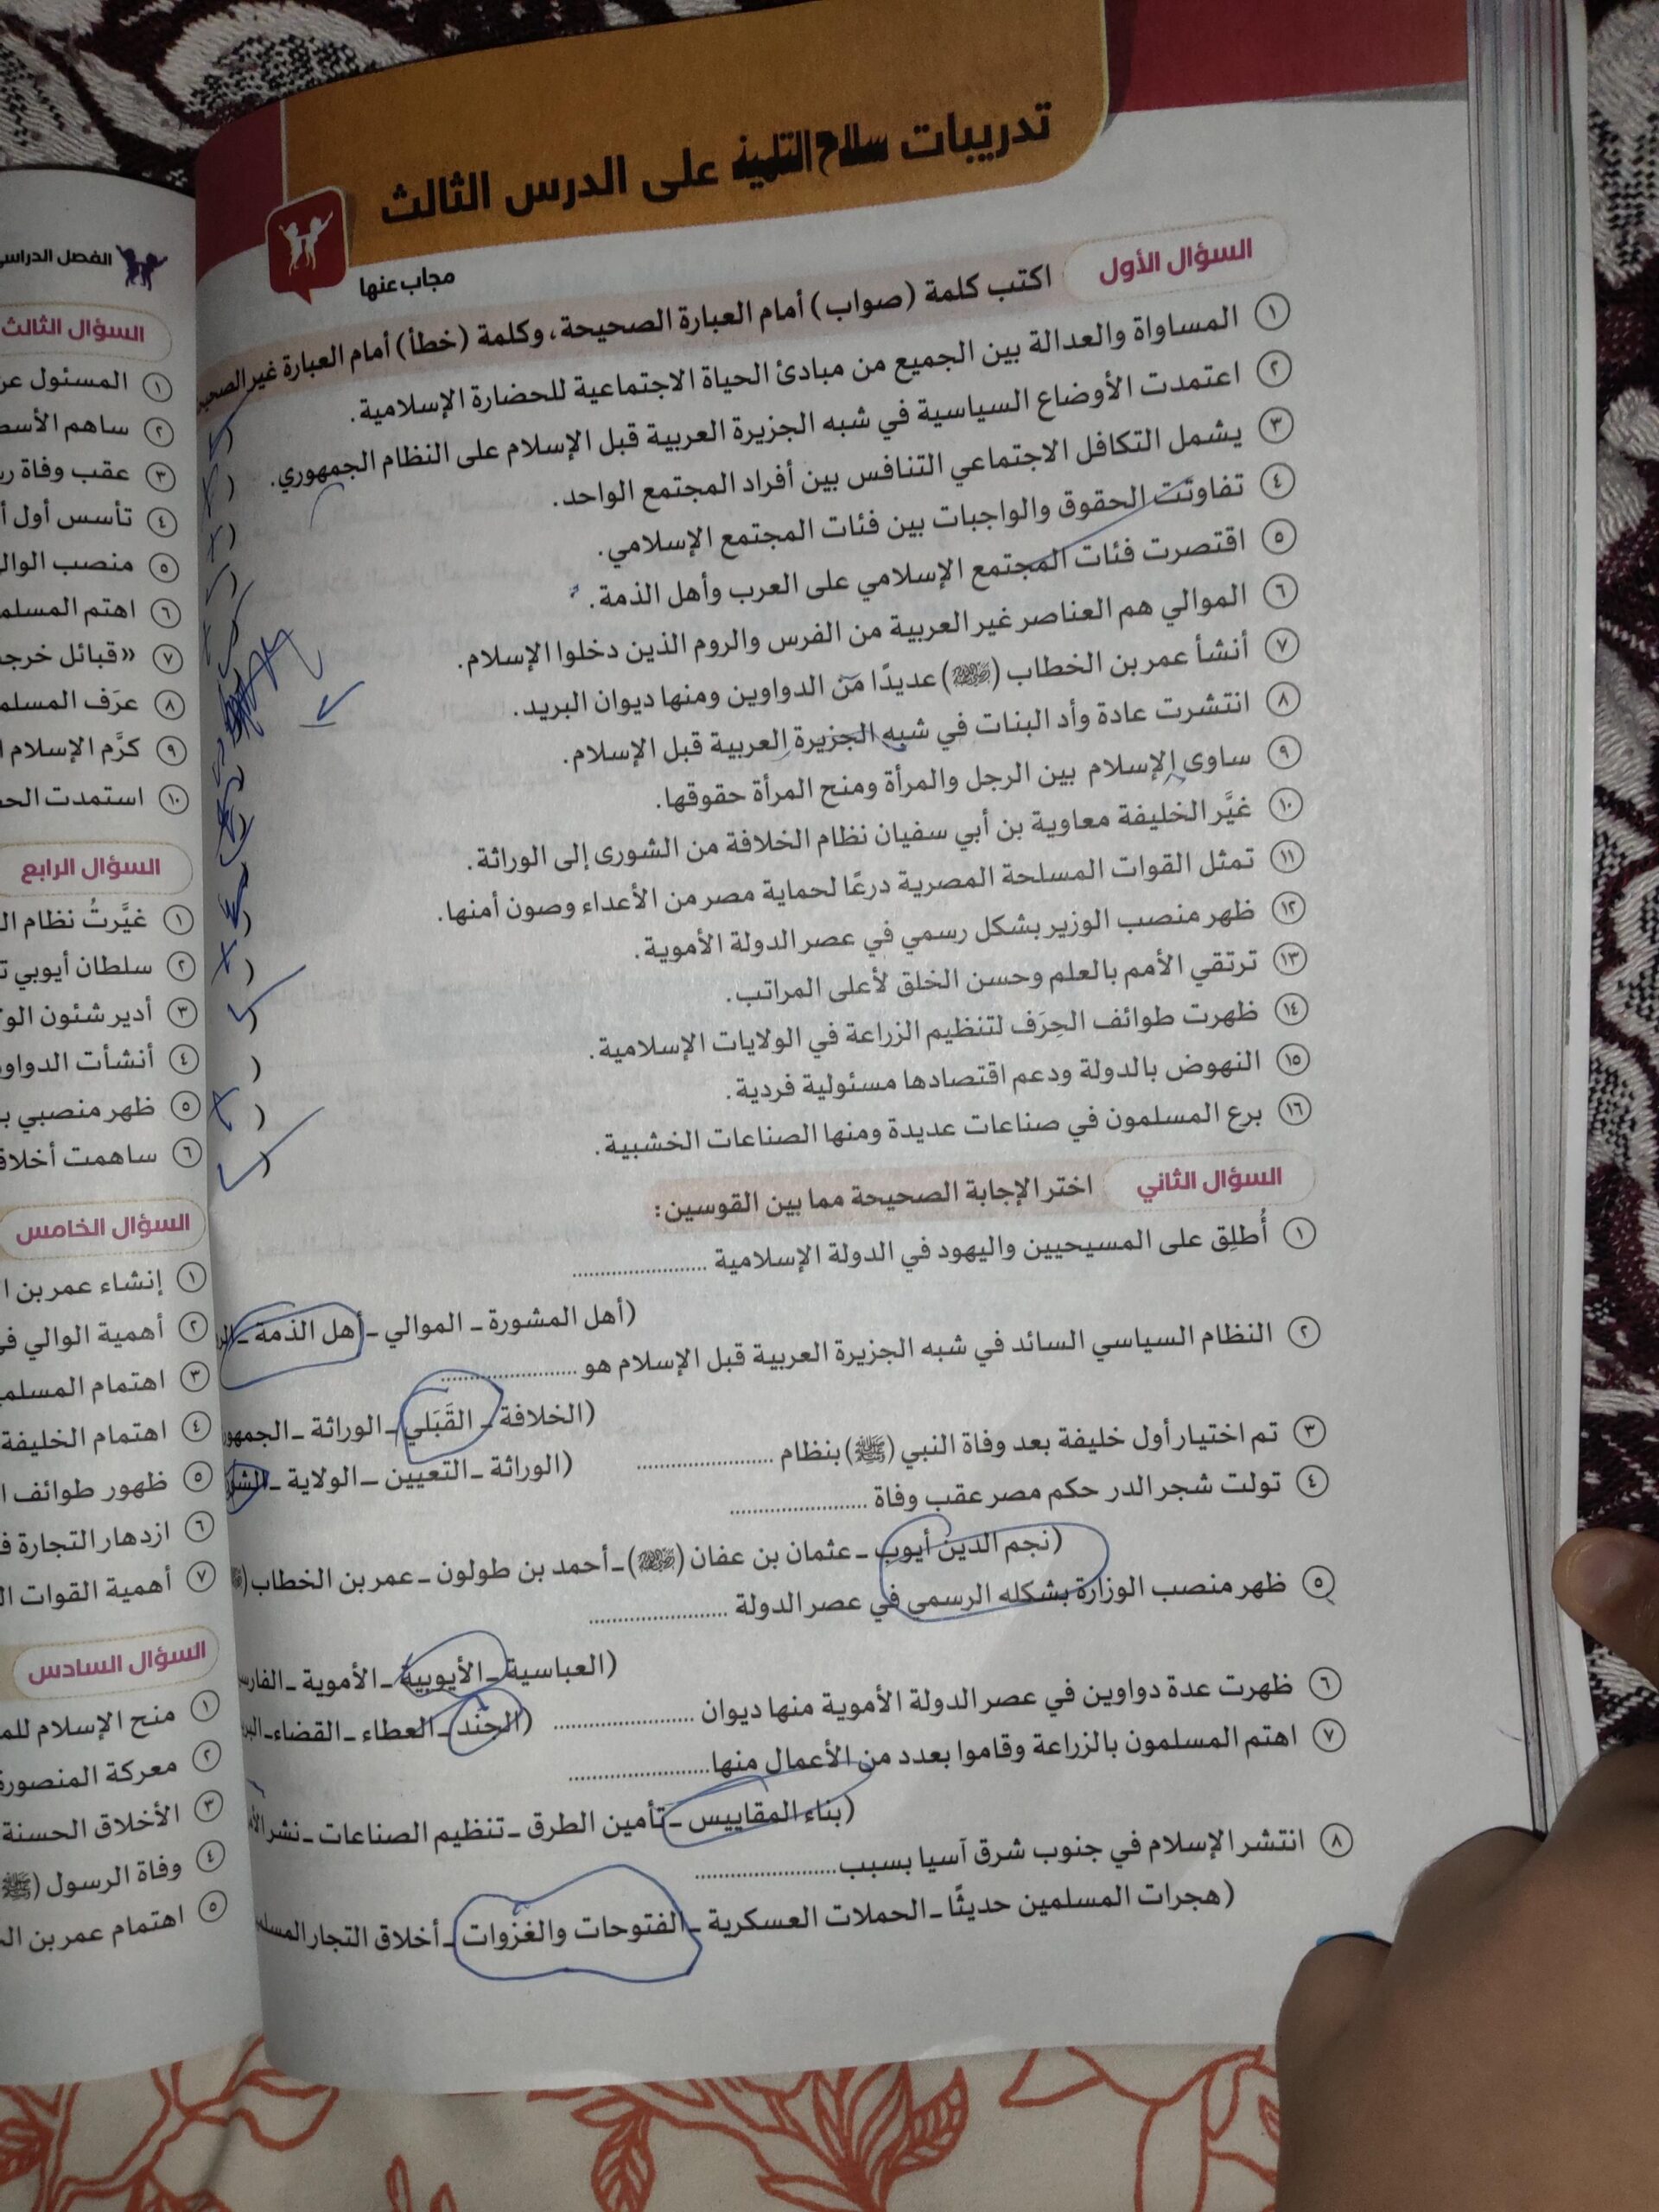 تدريبات سلاح التلميذ على الدرس الثالث
مجاب عنها
السؤال الأول
اكتب كلمة (صواب) أمام العبارة الصحيحة، وكلمة (خطأ) أمام العبارة غير
١ المساواة والعدالة بين الجميع من مبادئ الحياة الاجتماعية للحضارة الإسلامية.
٢ اعتمدت الأوضاع السياسية في شبه الجزيرة العربية قبل الإسلام على النظام الجمهوري.
٣ يشمل التكافل الاجتماعي التنافس بين أفراد المجتمع الواحد.
٤ تفاوتت الحقوق والواجبات بين فئات المجتمع الإسلامي.
٥ اقتصرت فئات المجتمع الإسلامي على العرب وأهل الذمة.
٦ الموالي هم العناصر غير العربية من الفرس والروم الذين دخلوا الإسلام.
٧ أنشأ عمر بن الخطاب (رضي الله عنه) عديدًا من الدواوين ومنها ديوان البريد.
٨ انتشرت عادة وأد البنات في شبه الجزيرة العربية قبل الإسلام.
٩ ساوى الإسلام بين الرجل والمرأة ومنح المرأة حقوقها.
١٠ غيَّر الخليفة معاوية بن أبي سفيان نظام الخلافة من الشورى إلى الوراثة.
١١ تمثل القوات المسلحة المصرية درعًا لحماية مصر من الأعداء وصون أمنها.
١٢ ظهر منصب الوزير بشكل رسمي في عصر الدولة الأموية.
١٣ ترتقي الأمم بالعلم وحسن الخلق لأعلى المراتب.
١٤ ظهرت طوائف الحِرَف لتنظيم الزراعة في الولايات الإسلامية.
١٥ النهوض بالدولة ودعم اقتصادها مسئولية فردية.
١٦ برع المسلمون في صناعات عديدة ومنها الصناعات الخشبية.
السؤال الثاني
اختر الإجابة الصحيحة مما بين القوسين:
١ أُطلِق على المسيحيين واليهود في الدولة الإسلامية ......................
(أهل المشورة ـ الموالي ـ أهل الذمة ـ
٢ النظام السياسي السائد في شبه الجزيرة العربية قبل الإسلام هو ......................
(الخلافة ـ القَبَلي ـ الوراثة ـ
٣ تم اختيار أول خليفة بعد وفاة النبي (ﷺ) بنظام ......................
(الوراثة ـ التعيين ـ الولاية ـ
٤ تولت شجر الدر حكم مصر عقب وفاة ......................
(نجم الدين أيوب ـ عثمان بن عفان (رضي الله عنه) ـ أحمد بن طولون ـ عمر بن الخطاب
٥ ظهر منصب الوزارة بشكله الرسمي في عصر الدولة ......................
(العباسية ـ الأيوبية ـ الأموية ـ
٦ ظهرت عدة دواوين في عصر الدولة الأموية منها ديوان ......................
(الجند ـ العطاء ـ القضاء ـ
٧ اهتم المسلمون بالزراعة وقاموا بعدد من الأعمال منها ......................
(بناء المقاييس ـ تأمين الطرق ـ تنظيم الصناعات ـ نشر
٨ انتشر الإسلام في جنوب شرق آسيا بسبب ......................
(هجرات المسلمين حديثًا ـ الحملات العسكرية ـ الفتوحات والغزوات ـ أخلاق التجار
الفصل
السؤال الثالث
١ المسئول
٢ ساهم
٣ عقب وفاة
٤ تأسس أول
٥ منصب
٦ اهتم
٧ «قبائل
٨ عرَف
٩ كرَّم الإسلام
١٠ استمدت
السؤال الرابع
١ غيَّرتُ نظام
٢ سلطان أيوبي
٣ أدير شئون
٤ أنشأت
٥ ظهر منصبي
٦ ساهمت
السؤال الخامس
١ إنشاء عمر بن
٢ أهمية الوالي
٣ اهتمام
٤ اهتمام الخليفة
٥ ظهور طوائف
٦ ازدهار التجارة
٧ أهمية القوات
السؤال السادس
١ منح الإسلام
٢ معركة المنصورة
٣ الأخلاق الحسنة
٤ وفاة الرسول (ﷺ)
٥ اهتمام عمر بن